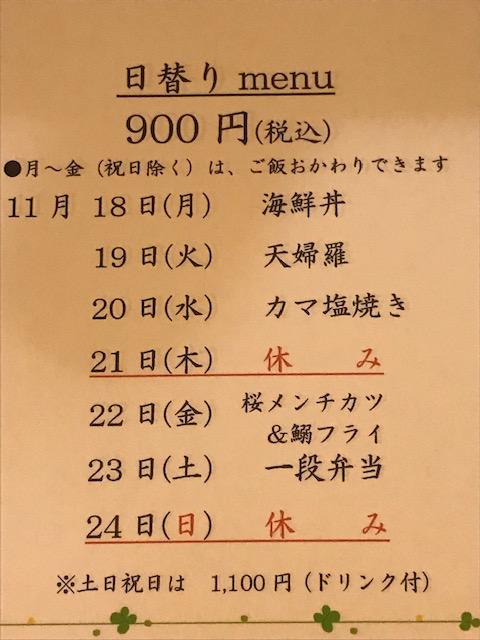 日替り menu
900 円(税込)
●月～金（祝日除く）は、ご飯おかわりできます
11月 18日(月) 海鮮丼
19日(火) 天婦羅
20日(水) カマ塩焼き
21日(木) 休 み
22日(金) 桜メンチカツ
&鰯フライ
23日(土) 一段弁当
24日(日) 休 み
※土日祝日は 1,100円（ドリンク付）